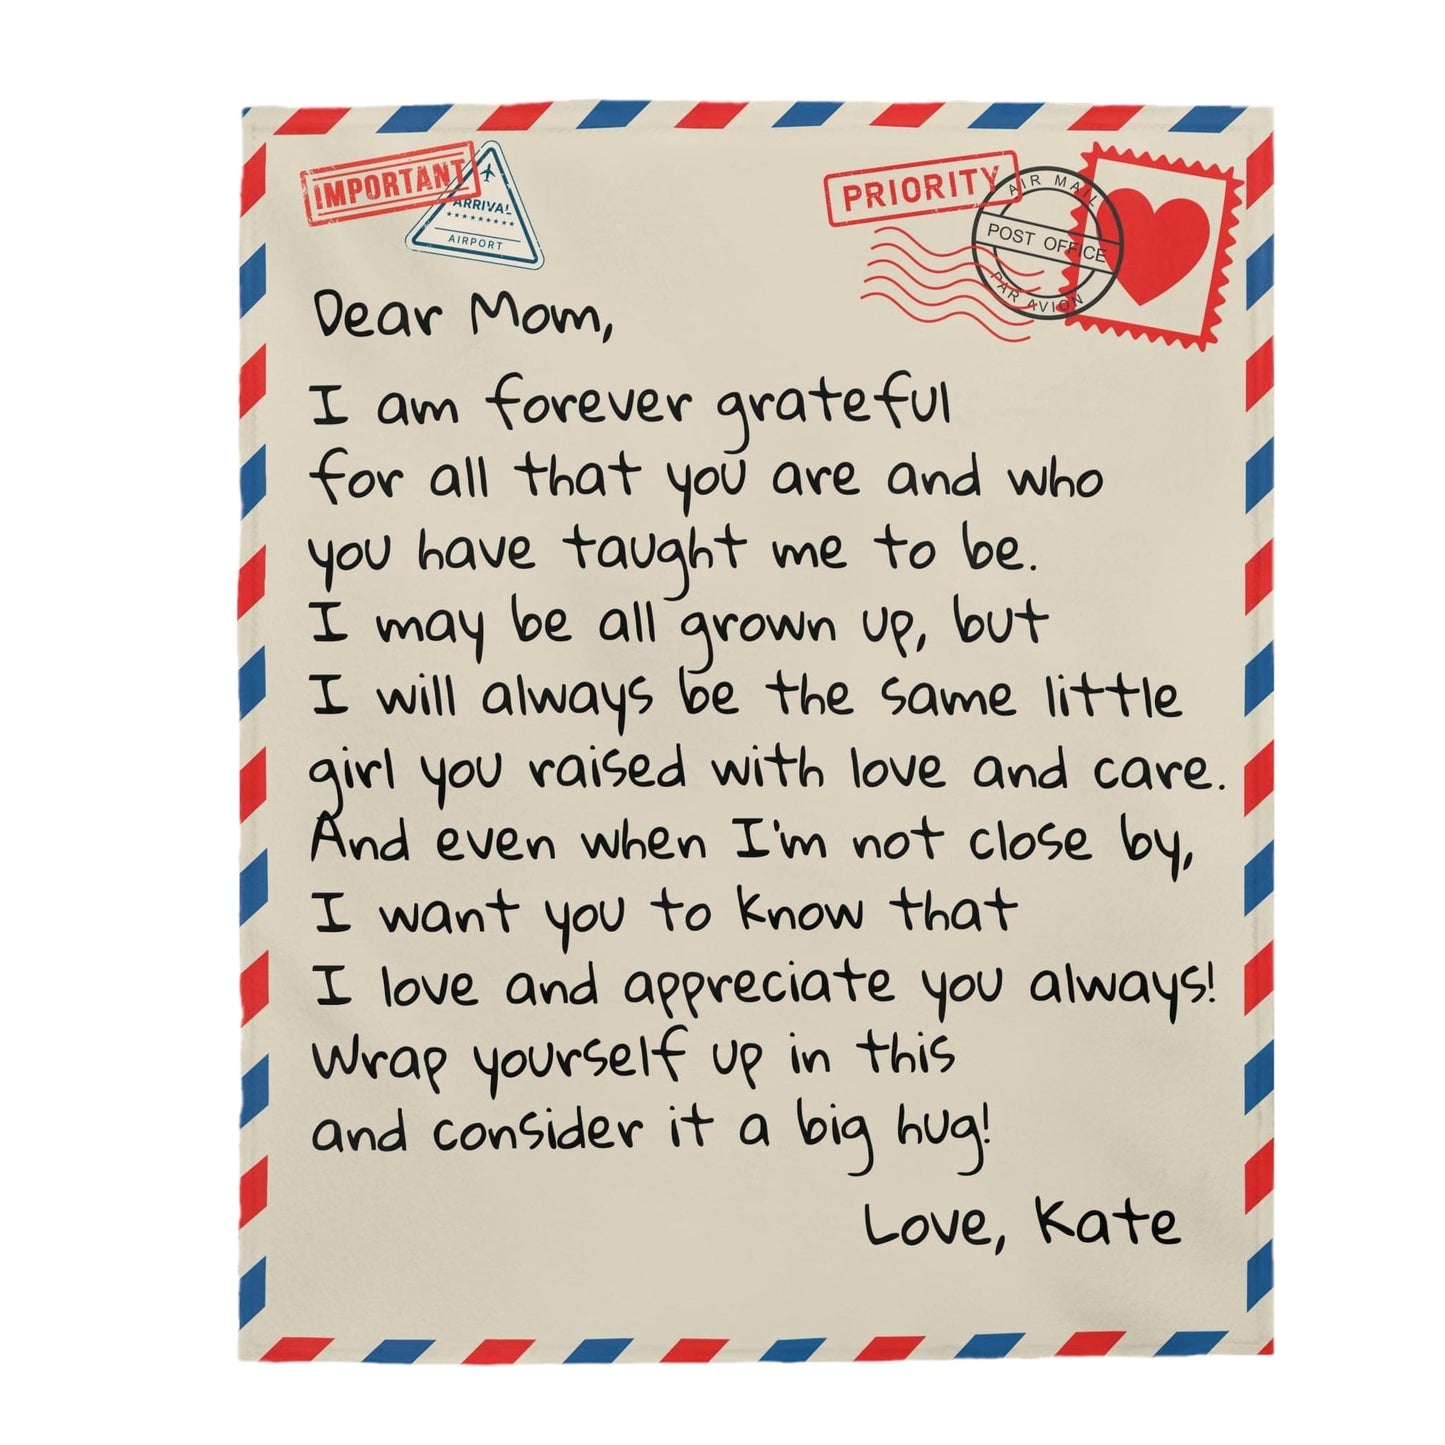 IMPORTANT
ARRIVAL
AIRPORT
PRIORITY
AIR MAIL
POST OFFICE
PAR AVION
Dear Mom,
I am forever grateful
for all that you are and who
you have taught me to be.
I may be all grown up, but
I will always be the same little
girl you raised with love and care.
And even when I'm not close by,
I want you to know that
I love and appreciate you always!
Wrap yourself up in this
and consider it a big hug!
Love, Kate